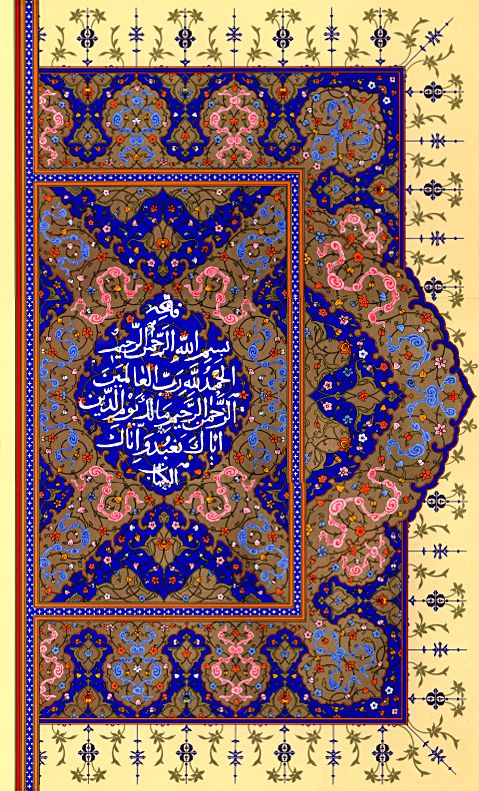 فاتحة
بِسْمِ اللهِ الرَّحْمٰنِ الرَّحِيمِ
اَلْحَمْدُ لِلّٰهِ رَبِّ الْعَالَمِينَ
اَلرَّحْمٰنِ الرَّحِيمِ مَالِكِ يَوْمِ الدِّينِ
اِيَّاكَ نَعْبُدُ وَاِيَّاكَ
الكتاب